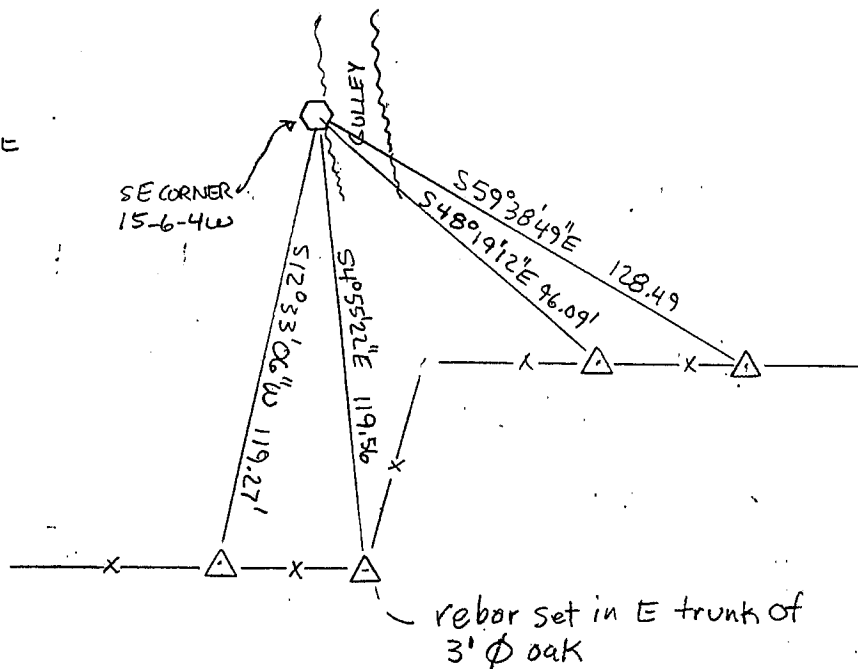 GULLEY
E
SE CORNER
15-6-4W
S59°38'49"E 128.49
S48°19'12"E 96.09'
S12°33'06"W 119.27'
S4°55'22"E 119.56
rebar set in E trunk of
3' Ø oak